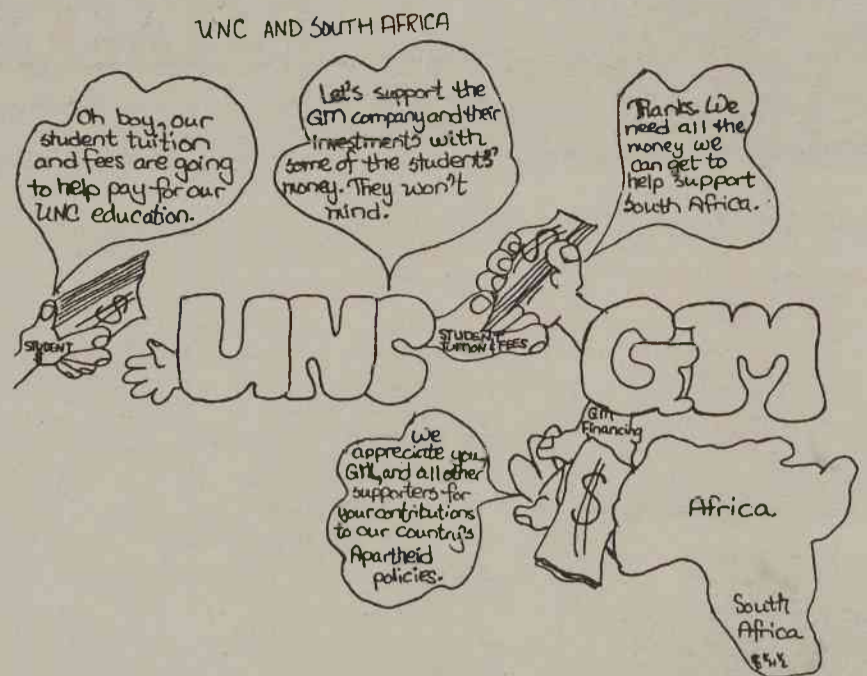 UNC AND SOUTH AFRICA
Oh boy, our
student tuition
and fees are going
to help pay for our
UNC education.
Let's support the
GM company and their
investments with
some of the students'
money. They won't
mind.
Thanks. We
need all the
money we
can get to
help support
South Africa.
STUDENT
$
UNC
STUDENT
TUITION & FEES
$
GM
GM
Financing
$
We
appreciate you,
GM, and all other
supporters for
your contributions
to our country's
Apartheid
policies.
Africa
South
Africa